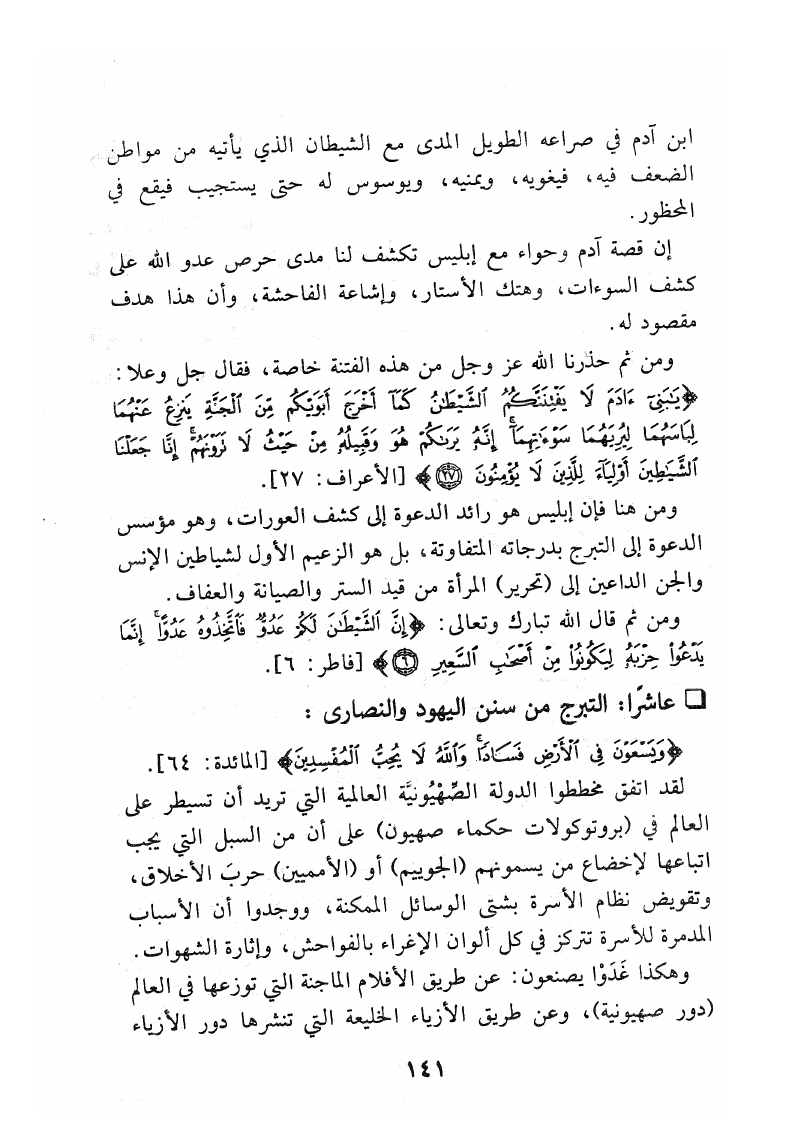 ابن آدم في صراعه الطويل المدى مع الشيطان الذي يأتيه من مواطن
الضعف فيه، فيغويه، ويمنيه، ويوسوس له حتى يستجيب فيقع في
المحظور.
إن قصة آدم وحواء مع إبليس تكشف لنا مدى حرص عدو الله على
كشف السوءات، وهتك الأستار، وإشاعة الفاحشة، وأن هذا هدف
مقصود له.
ومن ثم حذرنا الله عز وجل من هذه الفتنة خاصة، فقال جل وعلا:
﴿يَـٰبَنِىٓ ءَادَمَ لَا يَفْتِنَنَّكُمُ ٱلشَّيْطَـٰنُ كَمَآ أَخْرَجَ أَبَوَيْكُم مِّنَ ٱلْجَنَّةِ يَنزِعُ عَنْهُمَا
لِبَاسَهُمَا لِيُرِيَهُمَا سَوْءَٰتِهِمَآ ۗ إِنَّهُۥ يَرَىٰكُمْ هُوَ وَقَبِيلُهُۥ مِنْ حَيْثُ لَا تَرَوْنَهُمْ ۗ إِنَّا جَعَلْنَا
ٱلشَّيَـٰطِينَ أَوْلِيَآءَ لِلَّذِينَ لَا يُؤْمِنُونَ ٢٧﴾ [الأعراف: ٢٧].
ومن هنا فإن إبليس هو رائد الدعوة إلى كشف العورات، وهو مؤسس
الدعوة إلى التبرج بدرجاته المتفاوتة، بل هو الزعيم الأول لشياطين الإنس
والجن الداعين إلى (تحرير) المرأة من قيد الستر والصيانة والعفاف.
ومن ثم قال الله تبارك وتعالى: ﴿إِنَّ ٱلشَّيْطَـٰنَ لَكُمْ عَدُوٌّ فَٱتَّخِذُوهُ عَدُوًّا ۚ إِنَّمَا
يَدْعُوا۟ حِزْبَهُۥ لِيَكُونُوا۟ مِنْ أَصْحَـٰبِ ٱلسَّعِيرِ ٦﴾ [فاطر: ٦].
❑ عاشرًا: التبرج من سنن اليهود والنصارى :
﴿وَيَسْعَوْنَ فِى ٱلْأَرْضِ فَسَادًا ۚ وَٱللَّهُ لَا يُحِبُّ ٱلْمُفْسِدِينَ﴾ [المائدة: ٦٤].
لقد اتفق مخططوا الدولة الصِّهْيُونيَّة العالمية التي تريد أن تسيطر على
العالم في (بروتوكولات حكماء صهيون) على أن من السبل التي يجب
اتباعها لإخضاع من يسمونهم (الجوييم) أو (الأمميين) حربَ الأخلاق،
وتقويض نظام الأسرة بشتى الوسائل الممكنة، ووجدوا أن الأسباب
المدمرة للأسرة تتركز في كل ألوان الإغراء بالفواحش، وإثارة الشهوات.
وهكذا غَدَوْا يصنعون: عن طريق الأفلام الماجنة التي توزعها في العالم
(دور صهيونية)، وعن طريق الأزياء الخليعة التي تنشرها دور الأزياء
١٤١